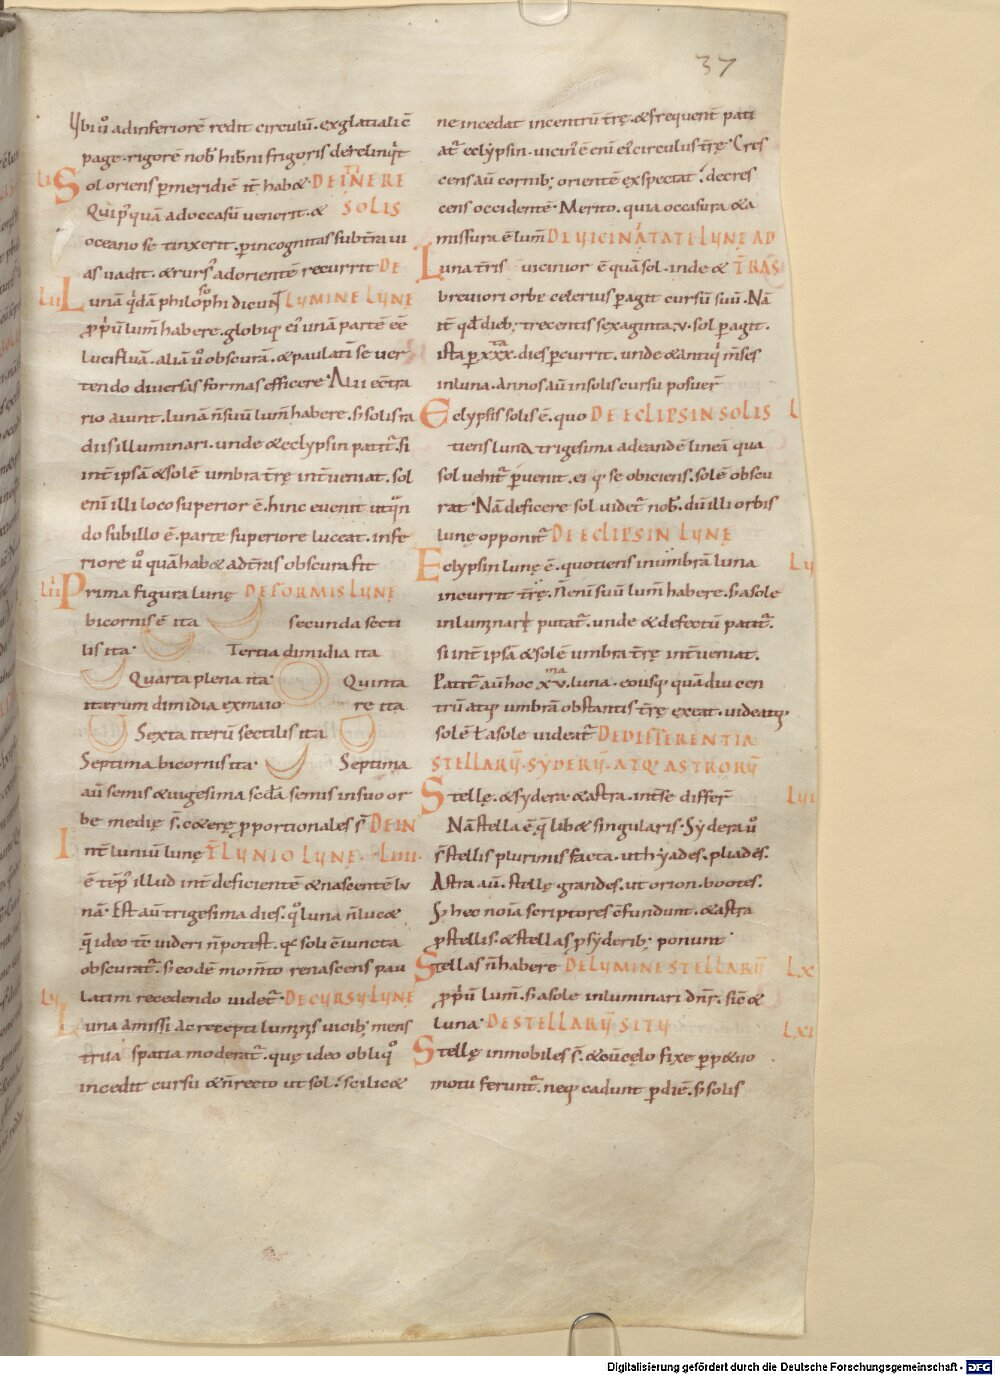 37
Vbi ů adinferiorē redit circulū. exglatiali ē
page. rigorē nob̄ hib̄ni frigoris derelinq̇t
Sol oriens p̱meridiē it̄ hab&. DE ITINERE
Qui p̄quā adoccasū venerit. & SOLIS
oceano se tinxerit. p̱incognitas subt̄ra ui
as uadit. & rurs' adorientē recurrit DE
lii Lunā q̇dā philosophi dicunt LVMINE LVNE
p̱p̄ū lum̄ habere. globiq; ei' unā partē eē
lucifluā. aliā ů obscurā. & paulati se ver
tendo diuersas formas efficere. Alii ec̄tra
rio aiunt. lunā n̄ suū lum̄ habere. s; solis ra
diis illuminari. unde & eclypsin patit̄. si
int̄ ipsā & solē umbra t̄rę int̄ueniat. sol
eni illi loco superior ē. hinc euenit ut q̄n
do sub illo ē. parte superiore luceat. infe
riore ů quā hab& ad t̄ras obscura fit
liii Prima figura lunę DE FORMIS LVNĘ
bicornis ē ita secunda secti
lis ita. Tertia dimidia ita
Quarta plena ita. Quinta
iterum dimidia ex maio re ita
Sexta iterū sectilis ita
Septima bicornis ita. Septima
aū semis & uigesima sc̄da semis in suo or
be medię s̄. c&erę p̱portionales s̄ DE IN
Int̄ luniū lunę T̄LVNIO LVNE. Liiii.
ē tēp' illud int̄ deficientē & nascentē lu
nā. Est aū trigesima dies. q̊ luna n̄ luc&
q̄ ideo tē uideri n̄ potest. q; soli ēiuncta
obscurat̄. s; eodē mom̄to renascens pau
lv latim recedendo videt̄. DE CVRSV LVNĘ
Luna amissi ac recepti lumin̄s uicib; mens
trua spatia moderat̄. quę ideo obliq̊
incedit cursu & n̄ recto ut sol. scilic&
ne incedat in centrū t̄rę. & frequent̄ pati
at̄ eclypsin. uicin' ē eni ei' circulus t̄rę. Cres
cens aū cornib; orientē exspectat. decres
cens occidentē. Merito. quia occasura & a
missura ē lum̄ DE VICINITATE LVNE AD
Luna t̄ris vicinior ē quā sol. inde & T̄RAS
breuiori orbe celerius p̱agit cursū suū. Nā
it̄ qđ dieb; trecentis sexaginta. v. sol p̱agit.
ista p̱ xxx. dies p̱currit. unde & antiq̇ m̄ses
in luna. annos aū in solis cursu posuer̄
Eclypsis solis ē. quo DE ECLIPSIN SOLIS L
tiens luna trigesima ad eandē lineā qua
sol uehit̄ p̱uenit. ei q; se obiciens. solē obscu
rat. Nā deficere sol uidet̄ nob̄. dū illi orbis
lunę opponit̄ DE ECLIPSIN LVNĘ
Eclypsin lunę ē. quotiens in umbrā luna Lv
incurrit t̄rę. N̄ eni suū lum̄ habere. s; a sole
inluminari putat̄. unde & defectū patit̄.
si int̄ ipsā & solē umbra t̄rę int̄ueniat.
Patit̄ aū hoc xv. ma luna. eousq; quā diu cen
trū atq; umbrā obstantis t̄rę exeat. uideatq;
solē ł a sole uideat̄ DE DIFFERENTIA
STELLARV̄. SYDERV̄. ATQ; ASTRORV̄
Stellę. & sydera & astra. int̄ se differ̄ Lvi
Nā stella ē. q̄lib& singularis. Sydera ů
s̄ stellis plurimis facta. ut hyades. pliades.
Astra aū. stellę grandes. ut orion. bootes.
S; hec noīa scriptores c̄fundunt. & astra
p̱ stellis. & stellas p̱ syderib; ponunt
Stellas n̄ habere DE LVMINE STELLARV̄ Lx
p̱p̄ū lum̄. s; a sole inluminari dn̄r. sic̄ &
luna. DE STELLARV̄ SITV Lxi
Stellę inmobiles s̄. & cū cęlo fixe p̱p&uo
motu ferunt̄. neq; cadunt p̱ diē. s; solis
Digitalisierung gefördert durch die Deutsche Forschungsgemeinschaft - DFG